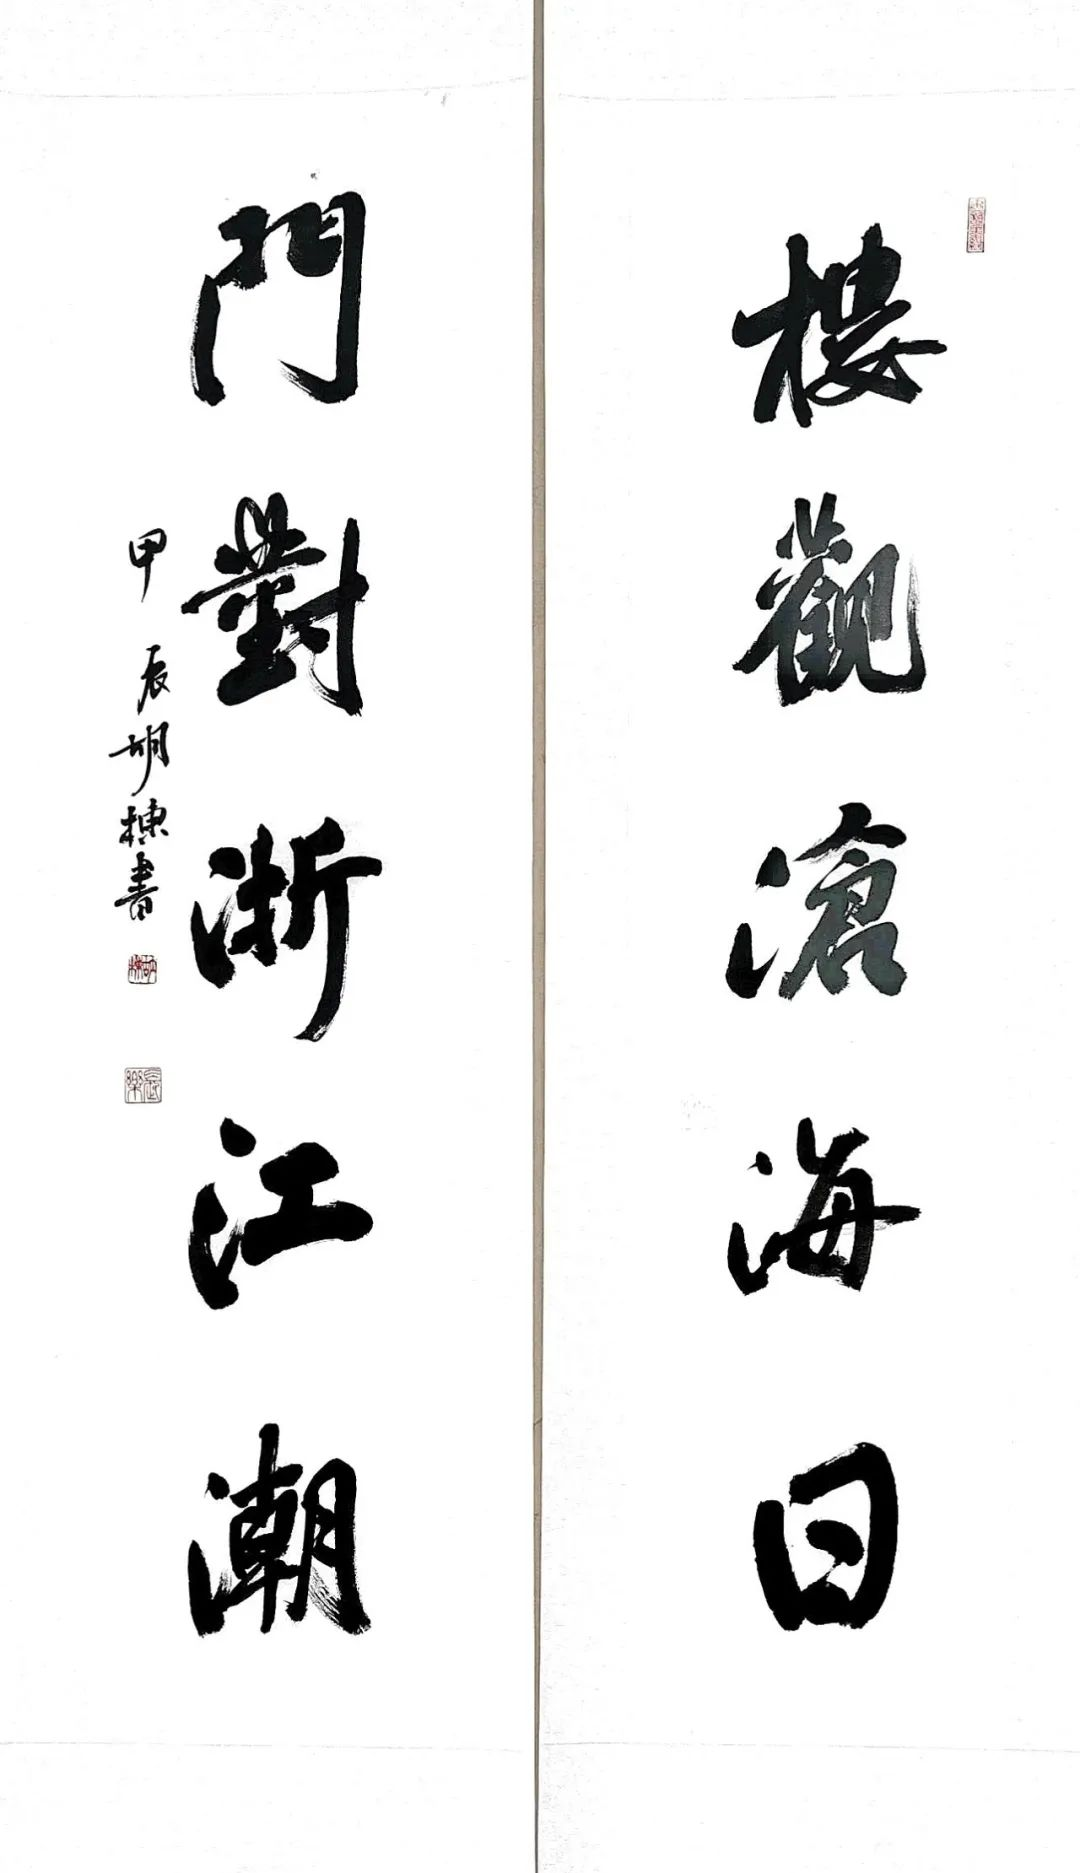 樓觀滄海日
門對浙江潮
甲辰胡棟書